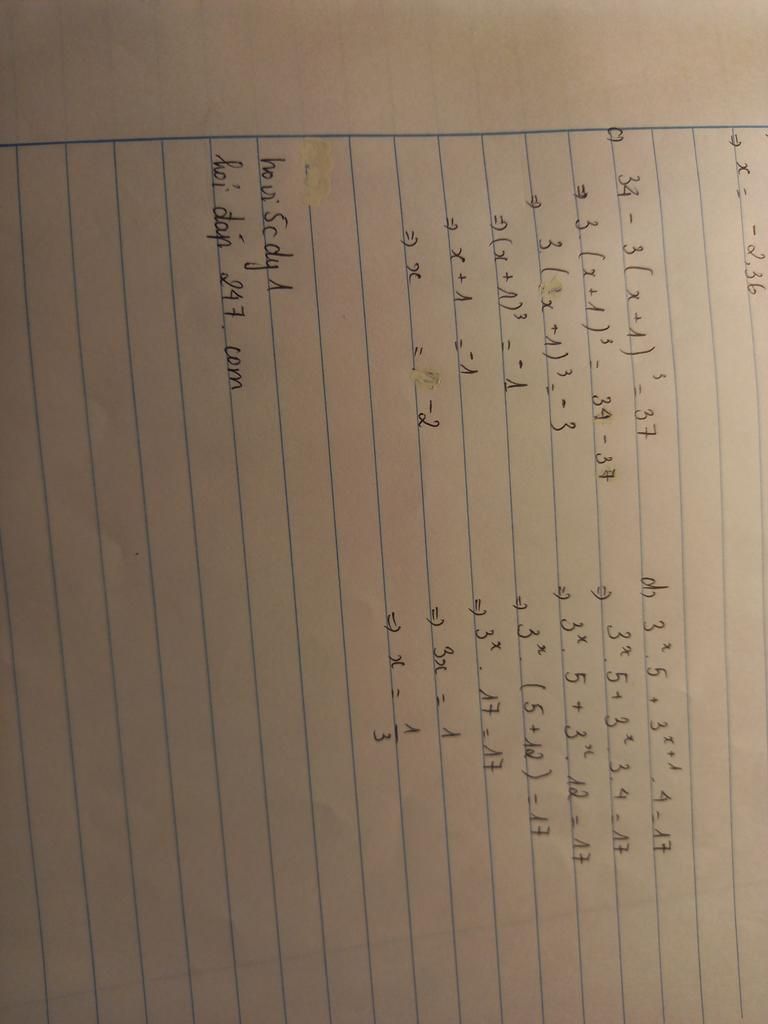 => x = -2,36
c) 34 - 3(x+1)³ = 37
=> 3.(x+1)³ = 34 - 37
=> 3(x+1)³ = -3
=> (x+1)³ = -1
=> x+1 = -1
=> x = -2
d, 3ˣ.5 + 3ˣ⁺¹.4 = 17
=> 3ˣ.5 + 3ˣ.3.4 = 17
=> 3ˣ.5 + 3ˣ.12 = 17
=> 3ˣ.(5+12) = 17
=> 3ˣ.17 = 17
=> 3x = 1
=> x = 1/3
hỏi đáp 247.com